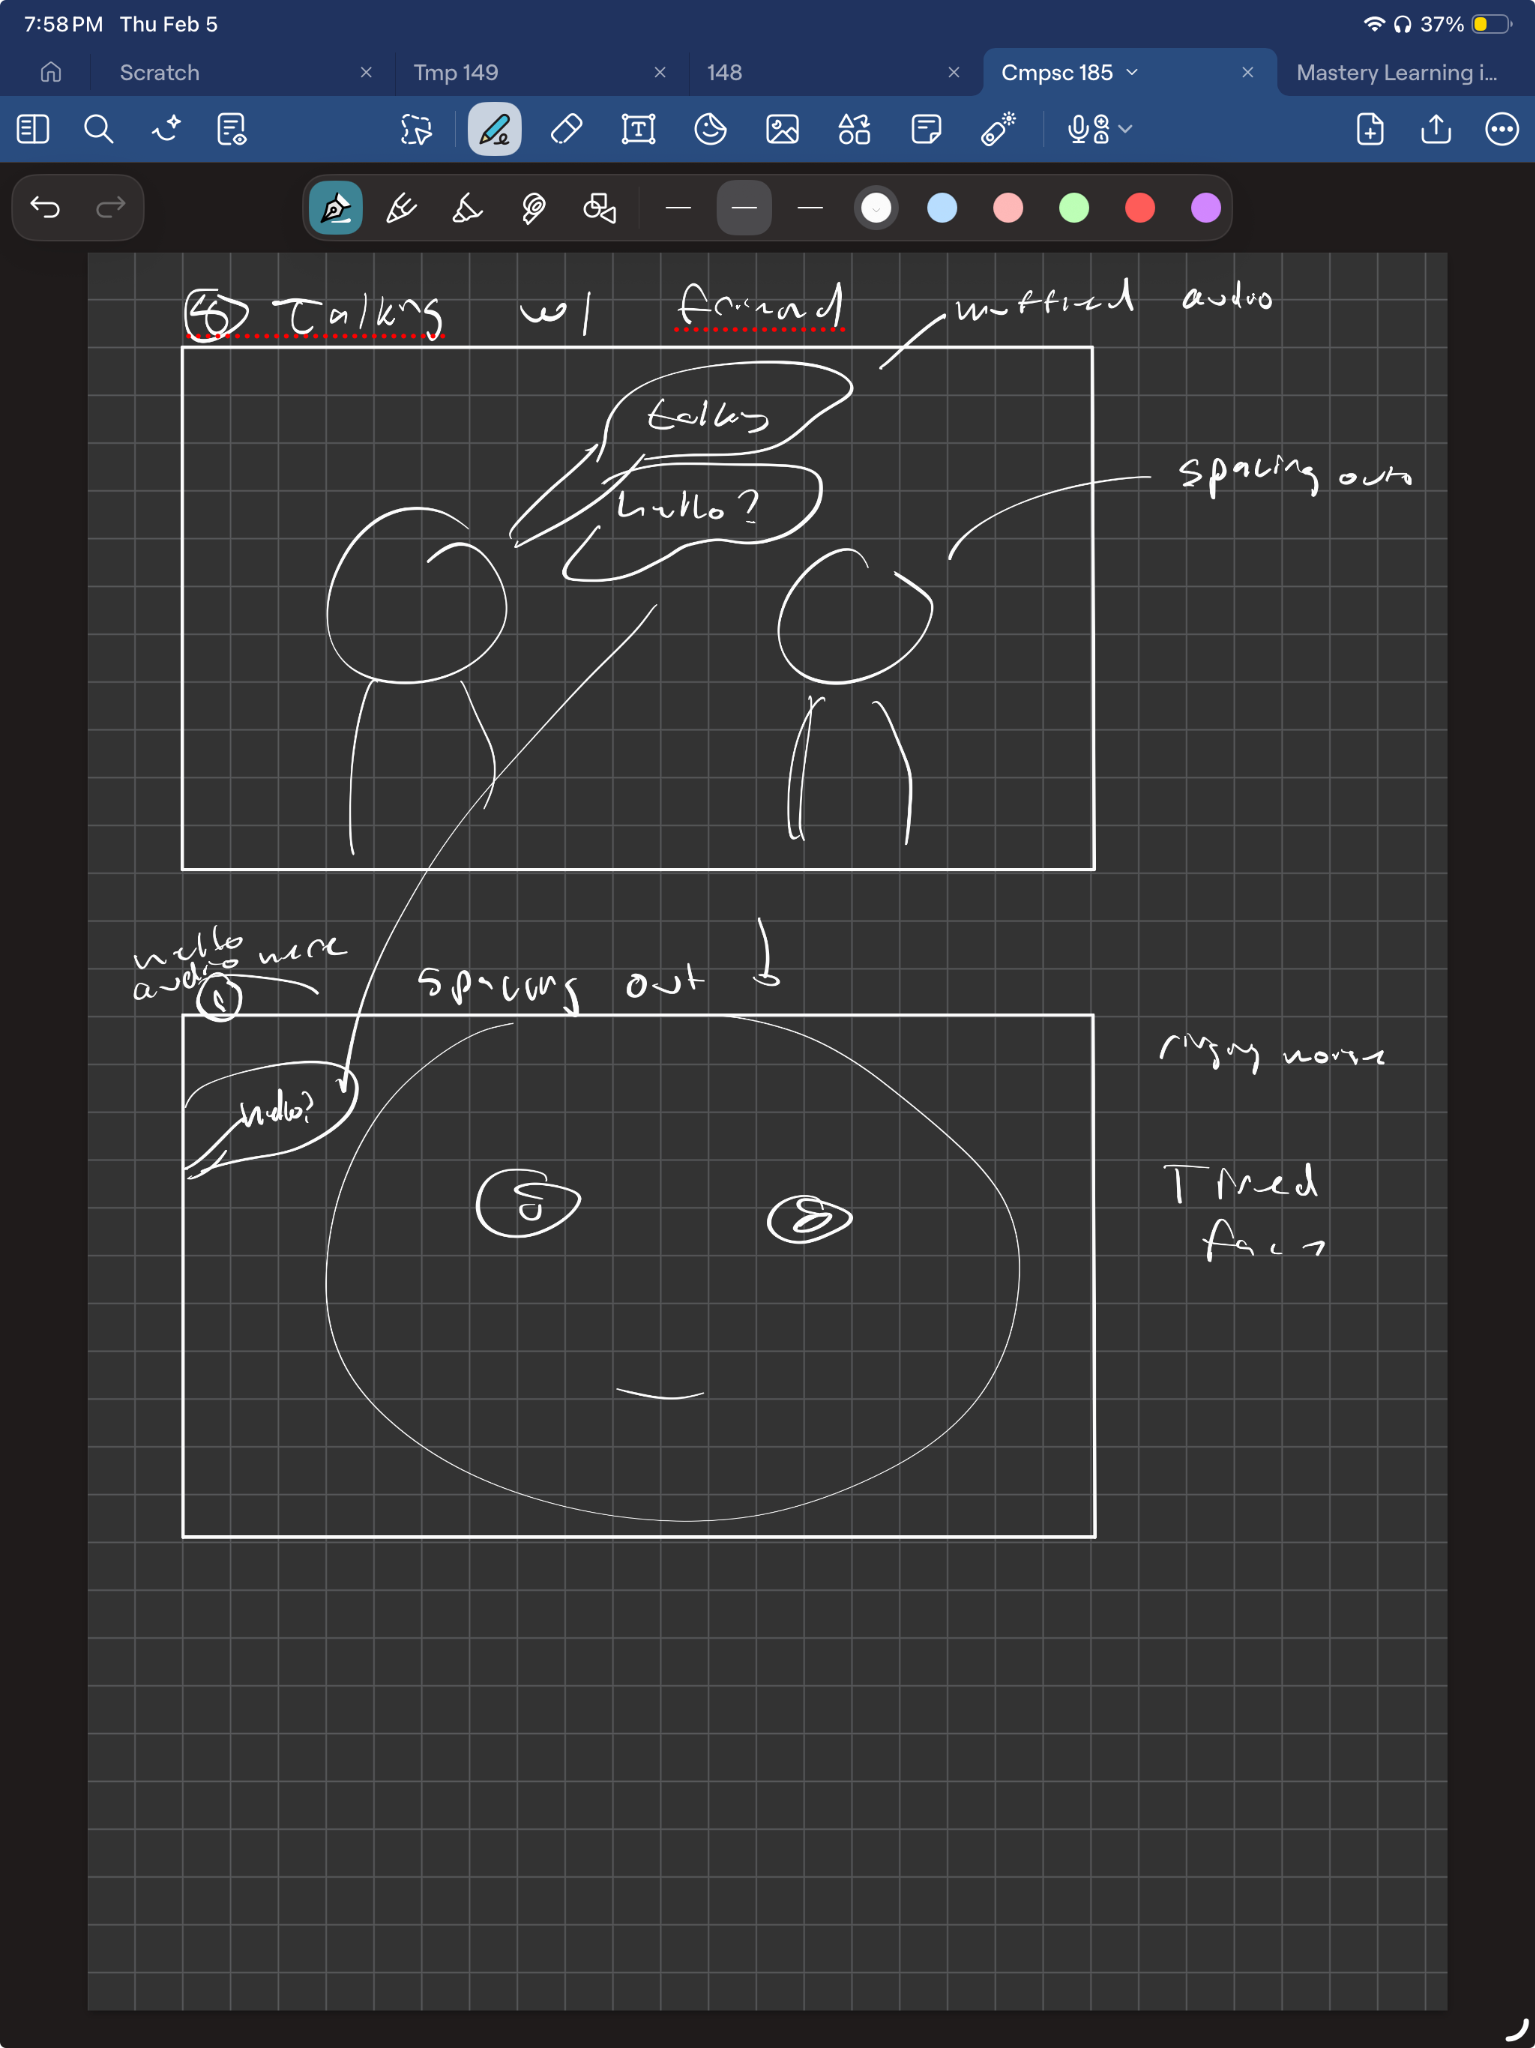 7:58 PM Thu Feb 5
37%
Scratch
Tmp 149
148
Cmpsc 185
Mastery Learning i...
Talkng w/ friend
muffled audio
talkng
hello?
spacing out
hello
audio here
Spacing out
hello?
noise
Tired
face